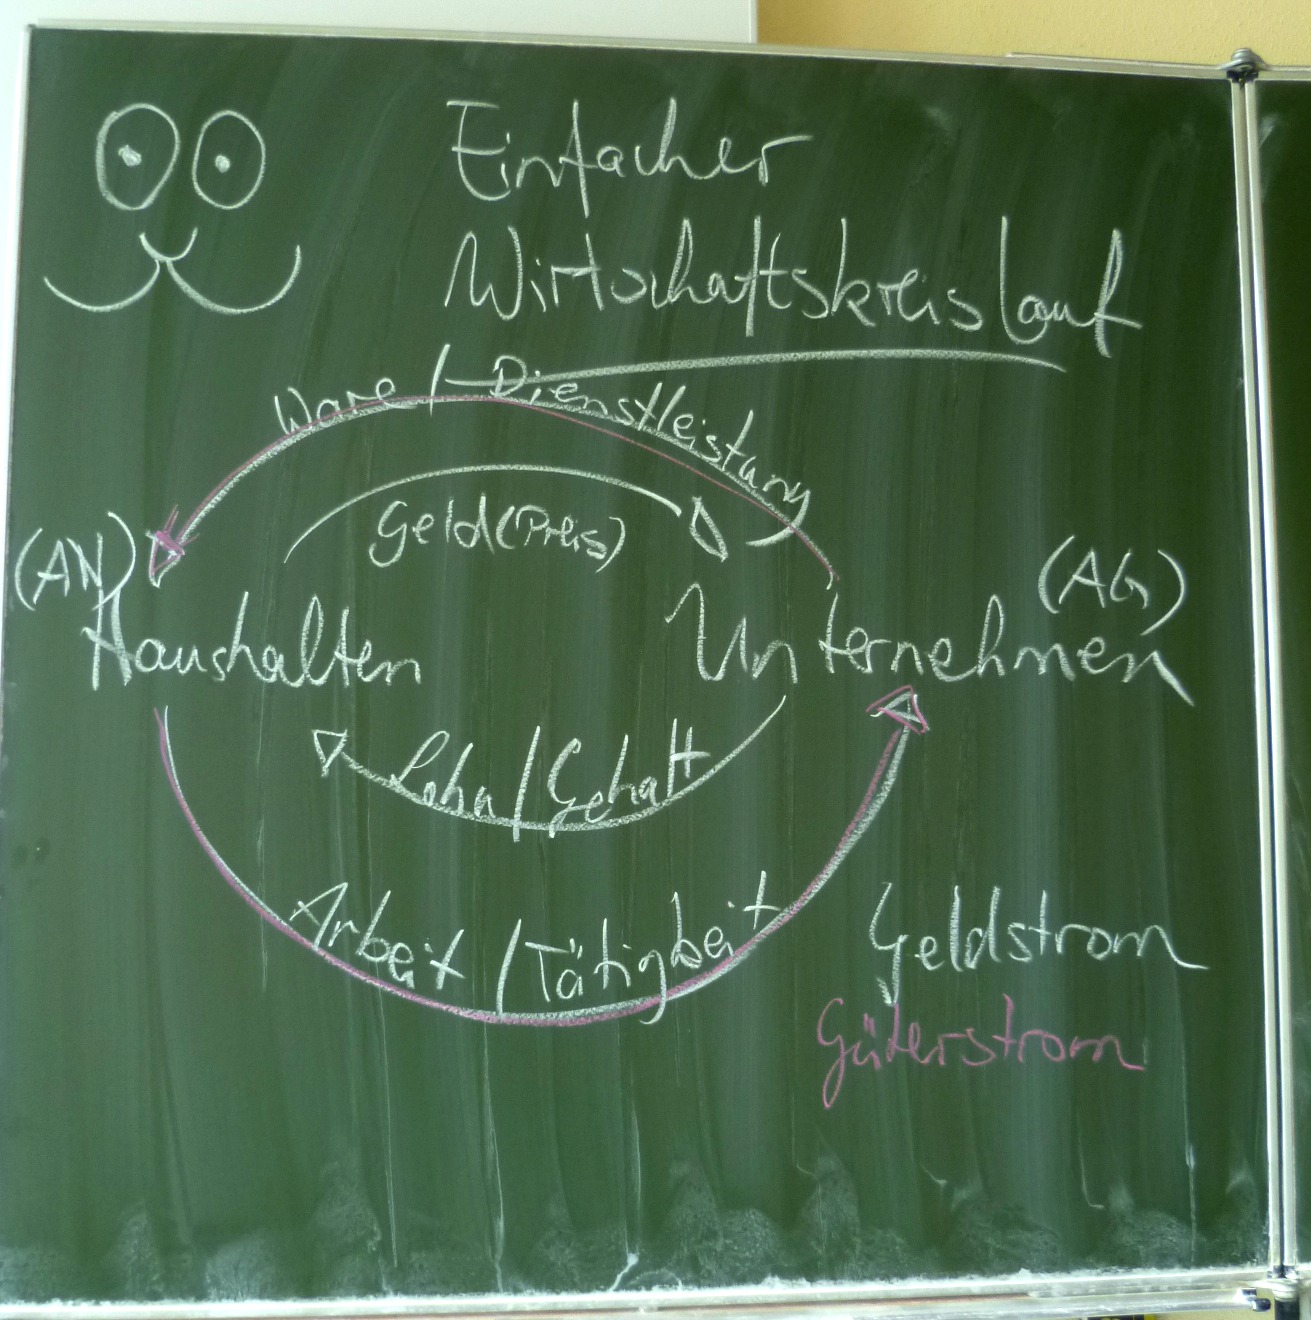 Einfacher
Wirtschaftskreislauf
Ware / Dienstleistung
Geld (Preis)
(AN)
(AG)
Haushalten
Unternehmen
Lohn / Gehalt
Arbeit / Tätigkeit
Geldstrom
Güterstrom